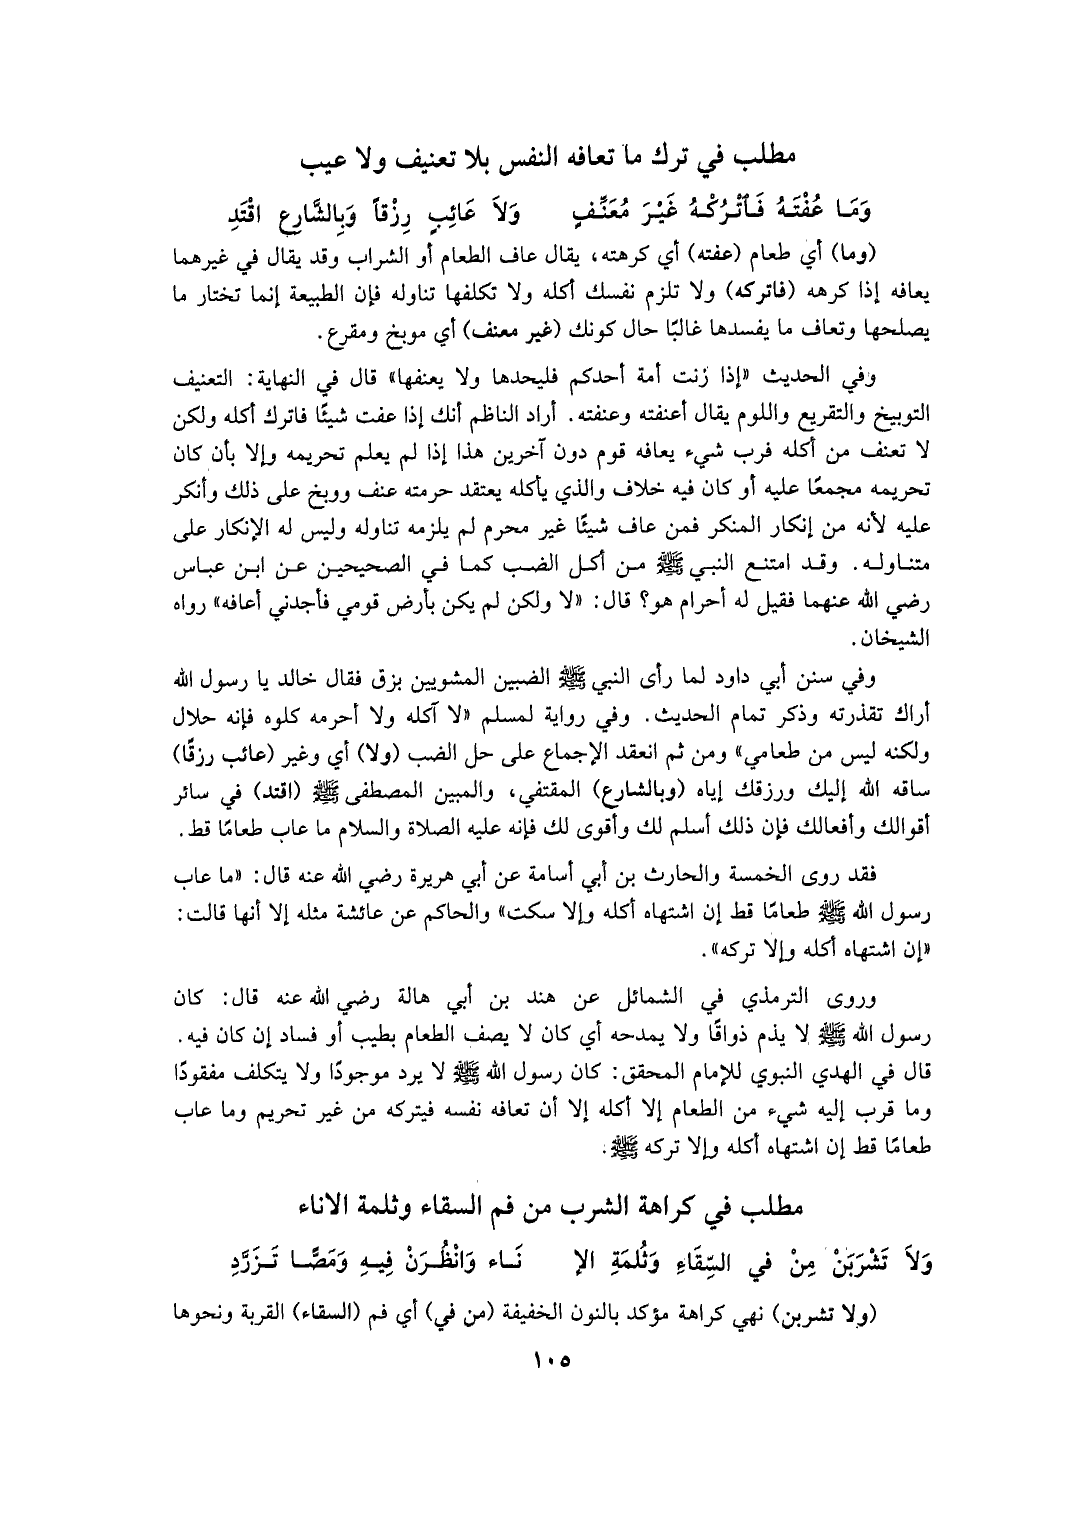 مطلب في ترك ما تعافه النفس بلا تعنيف ولا عيب
وَمَـا عُفْتَـهُ فَـاتْـرُكْـهُ غَيْـرَ مُعَنَّـفٍ وَلاَ عَائِبٍ رِزْقاً وَبِالشَّارِعِ اقْتَدِ
(وما) أي طعام (عفته) أي كرهته، يقال عاف الطعام أو الشراب وقد يقال في غيرهما
يعافه إذا كرهه (فاتركه) ولا تلزم نفسك أكله ولا تكلفها تناوله فإن الطبيعة إنما تختار ما
يصلحها وتعاف ما يفسدها غالبًا حال كونك (غير معنف) أي موبخ ومقرع.
وفي الحديث «إذا زنت أمة أحدكم فليحدها ولا يعنفها» قال في النهاية: التعنيف
التوبيخ والتقريع واللوم يقال أعنفته وعنفته. أراد الناظم أنك إذا عفت شيئًا فاترك أكله ولكن
لا تعنف من أكله فرب شيء يعافه قوم دون آخرين هذا إذا لم يعلم تحريمه وإلا بأن كان
تحريمه مجمعًا عليه أو كان فيه خلاف والذي يأكله يعتقد حرمته عنف ووبخ على ذلك وأنكر
عليه لأنه من إنكار المنكر فمن عاف شيئًا غير محرم لم يلزمه تناوله وليس له الإنكار على
متناوله. وقد امتنع النبي ﷺ من أكل الضب كما في الصحيحين عن ابن عباس
رضي الله عنهما فقيل له أحرام هو؟ قال: «لا ولكن لم يكن بأرض قومي فأجدني أعافه» رواه
الشيخان.
وفي سنن أبي داود لما رأى النبي ﷺ الضبين المشويين بزق فقال خالد يا رسول الله
أراك تقذرته وذكر تمام الحديث. وفي رواية لمسلم «لا آكله ولا أحرمه كلوه فإنه حلال
ولكنه ليس من طعامي» ومن ثم انعقد الإجماع على حل الضب (ولا) أي وغير (عائب رزقًا)
ساقه الله إليك ورزقك إياه (وبالشارع) المقتفي، والمبين المصطفى ﷺ (اقتد) في سائر
أقوالك وأفعالك فإن ذلك أسلم لك وأقوى لك فإنه عليه الصلاة والسلام ما عاب طعامًا قط.
فقد روى الخمسة والحارث بن أبي أسامة عن أبي هريرة رضي الله عنه قال: «ما عاب
رسول الله ﷺ طعامًا قط إن اشتهاه أكله وإلا سكت» والحاكم عن عائشة مثله إلا أنها قالت:
«إن اشتهاه أكله وإلا تركه».
وروى الترمذي في الشمائل عن هند بن أبي هالة رضي الله عنه قال: كان
رسول الله ﷺ لا يذم ذواقًا ولا يمدحه أي كان لا يصف الطعام بطيب أو فساد إن كان فيه.
قال في الهدي النبوي للإمام المحقق: كان رسول الله ﷺ لا يرد موجودًا ولا يتكلف مفقودًا
وما قرب إليه شيء من الطعام إلا أكله إلا أن تعافه نفسه فيتركه من غير تحريم وما عاب
طعامًا قط إن اشتهاه أكله وإلا تركه ﷺ.
مطلب في كراهة الشرب من فم السقاء وثلمة الاناء
وَلاَ تَشْرَبَنْ مِنْ في السِّقَاءِ وَثُلمَةِ الإ نَـاء وَانْظُـرَنْ فِيـهِ وَمَصًّـا تَـزَرَّدِ
(ولا تشربن) نهي كراهة مؤكد بالنون الخفيفة (من في) أي فم (السقاء) القربة ونحوها
١٠٥